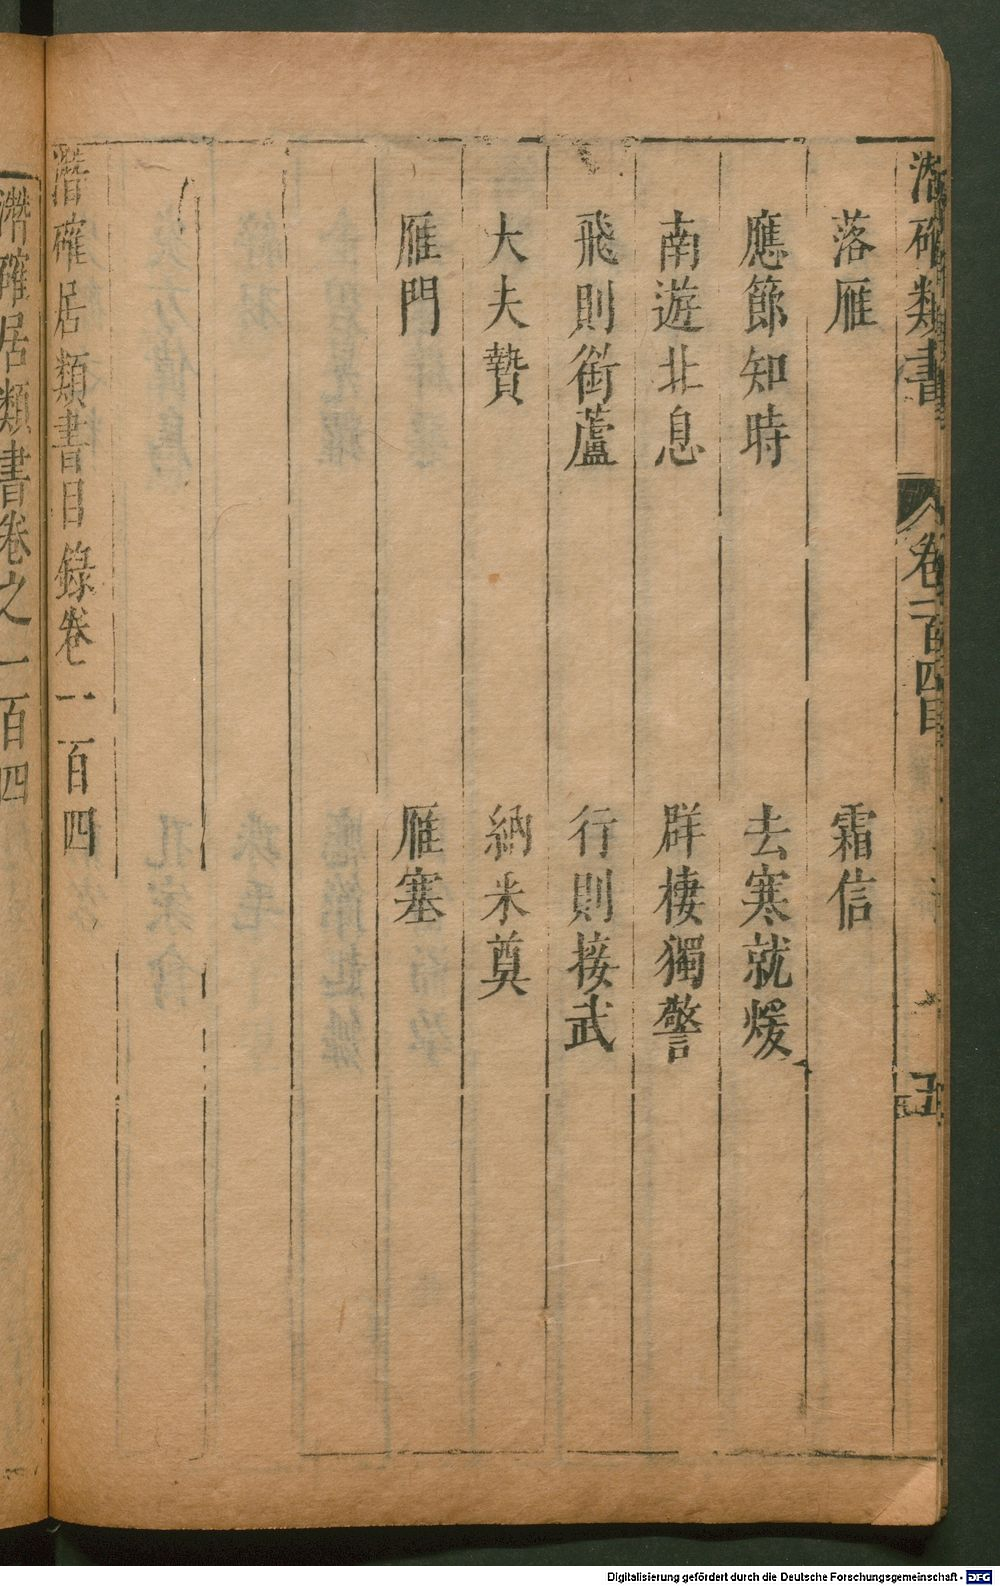 潛確類書 卷一百四目 五
落雁 霜信
應節知時 去寒就煖
南遊北息 群棲獨警
飛則銜蘆 行則接武
大夫贄 納米奠
雁門 雁塞
潛確居類書目錄卷一百四
潛確居類書卷之一百四
Digitalisierung gefördert durch die Deutsche Forschungsgemeinschaft - DFG